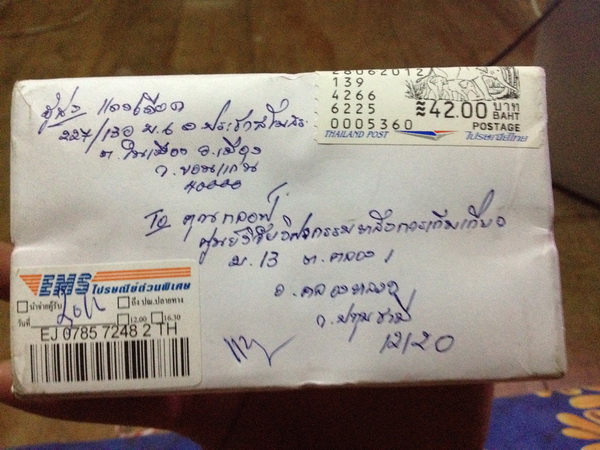 227/130 ม.6 ถ.ประชาสโมสร
ต.ในเมือง อ.เมือง
จ.ขอนแก่น
40000
28062012
139
4266
6225
0005360
42.00 บาท
BAHT
POSTAGE
THAILAND POST
ไปรษณีย์ไทย
To คุณกลอฟ
ศูนย์วิจัยวิศวกรรมหลังการเก็บเกี่ยว
ม.13 ต.คลอง 1
อ.คลองหลวง
จ.ปทุมธานี
12120
EMS ไปรษณีย์ด่วนพิเศษ
นำจ่ายผู้รับ ถึง ปณ.ปลายทาง
วันที่ 12.00 16.30
EJ 0785 7248 2 TH